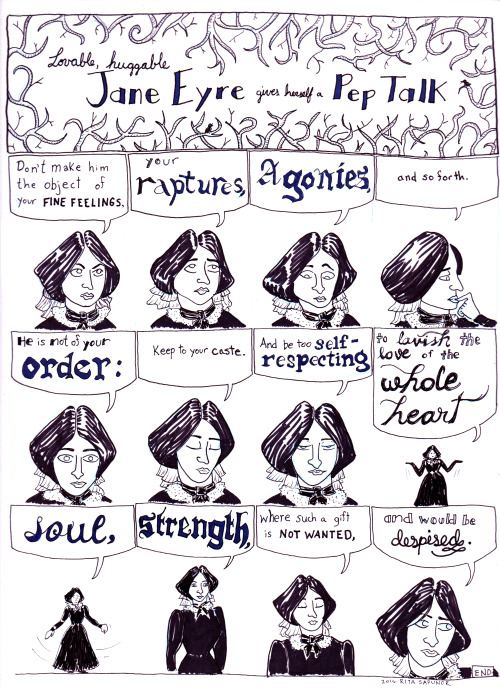 Lovable, huggable
Jane Eyre gives herself a Pep Talk
Don't make him
the object of
your FINE FEELINGS,
your
raptures,
Agonies,
and so forth.
He is not of your
order:
Keep to your caste.
And be too self-
respecting
to lavish the
love of the
whole
heart
soul,
strength,
where such a gift
is NOT WANTED,
and would be
despised.
END
2010 RITA SAPUNOR